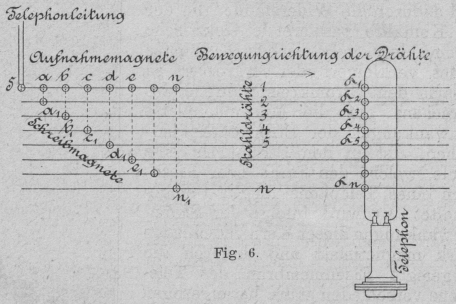 Telephonleitung
Aufnahmemagnete Bewegungrichtung der Drähte
S a b c d e n
a₁
b₁
c₁
d₁
e₁
n₁
Schreibmagnete
Stahldrähte
1
2
3
4
5
n
K₁
K₂
K₃
K₄
K₅
Kn
Telephon
Fig. 6.